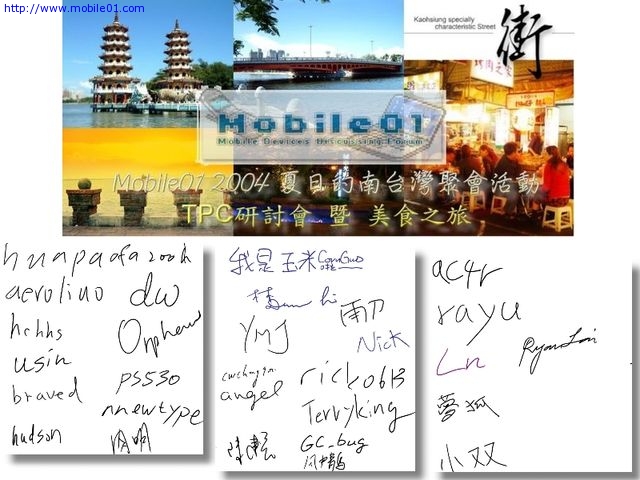 http://www.mobile01.com
Kaohsiung specially
characteristic Street
街
Mobile01
Mobile Devices Discussing Forum
Mobile01 2004 夏日的南台灣聚會活動
TPC研討會 暨 美食之旅
aerolino
dw
hchhs
Orpheus
usin
PS530
braved
nnewtype
hudson
明明
我是玉米
YMJ
雨刀
Nick
angel
ricko613
Terryking
GC_bug
ac4r
rayu
Ln
RyanLin
夢狐
小双